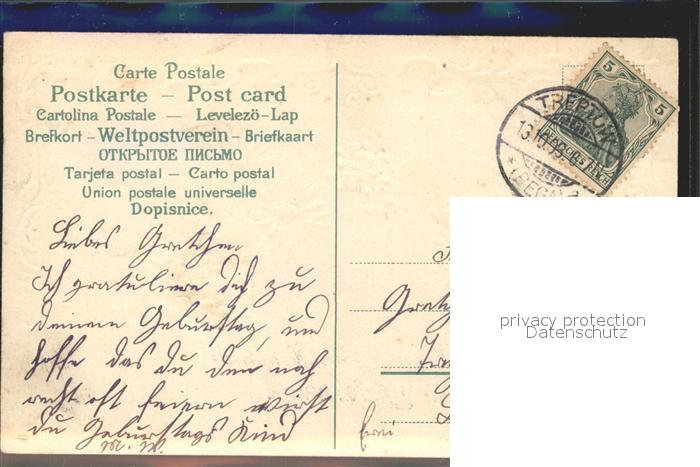 Carte Postale
Postkarte — Post card
Cartolina Postale — Levelezö-Lap
Brefkort – Weltpostverein – Briefkaart
ОТКРЫТОЕ ПИСЬМО
Tarjeta postal — Carto postal
Union postale universelle
Dopisnice.
5 5
DEUTSCHES REICH
TREPTOW
13.10.09.
* (REGA)
Liebes Gretchen
Ich gratuliere dich zu
deinem Geburtstag, und
hoffe das du den noch
recht oft feiern wirst
du Geburtstags Kind
M. W.
frei
privacy protection
Datenschutz